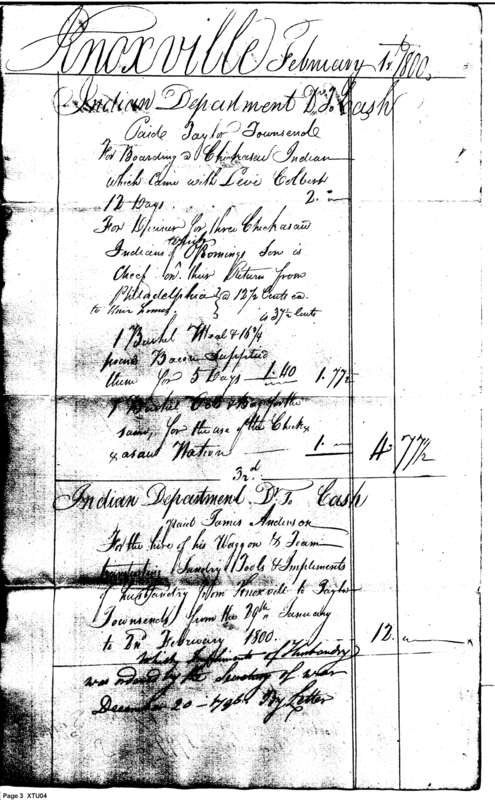 Knoxville February 1st 1800.
Indian Department Dr. To Cash
Paid Taylor Townsend
For Boarding a Chickasaw Indian
which came with Levi Colbert
12 Days. 2. "
For Dinner for three Chickasaw
Indians of which Opomings Son is
Cheef on their Return from
Philadelphia @ 12½ Cents ea.
to their homes is 37½ Cents
1 Bushel Meal & 16¾
pounds Bacon Supplied
them for 5 Days 1.40 1.77½
1 Bushel for the
same, for the use of the Chick
asaw Nation 1. " 4. 77½
3rd
Indian Department Dr. To Cash
paid James Anderson
For the hire of his Waggon & Team
Sundry Tools & Impliments
of husbandry from Knoxville to Taylor
Townsends from the 29th January
to February 1800. 12. "
which Impliments of Husbandry
was ordered by the Secretary of war
December 20 By Letter
Page 3 XTU04